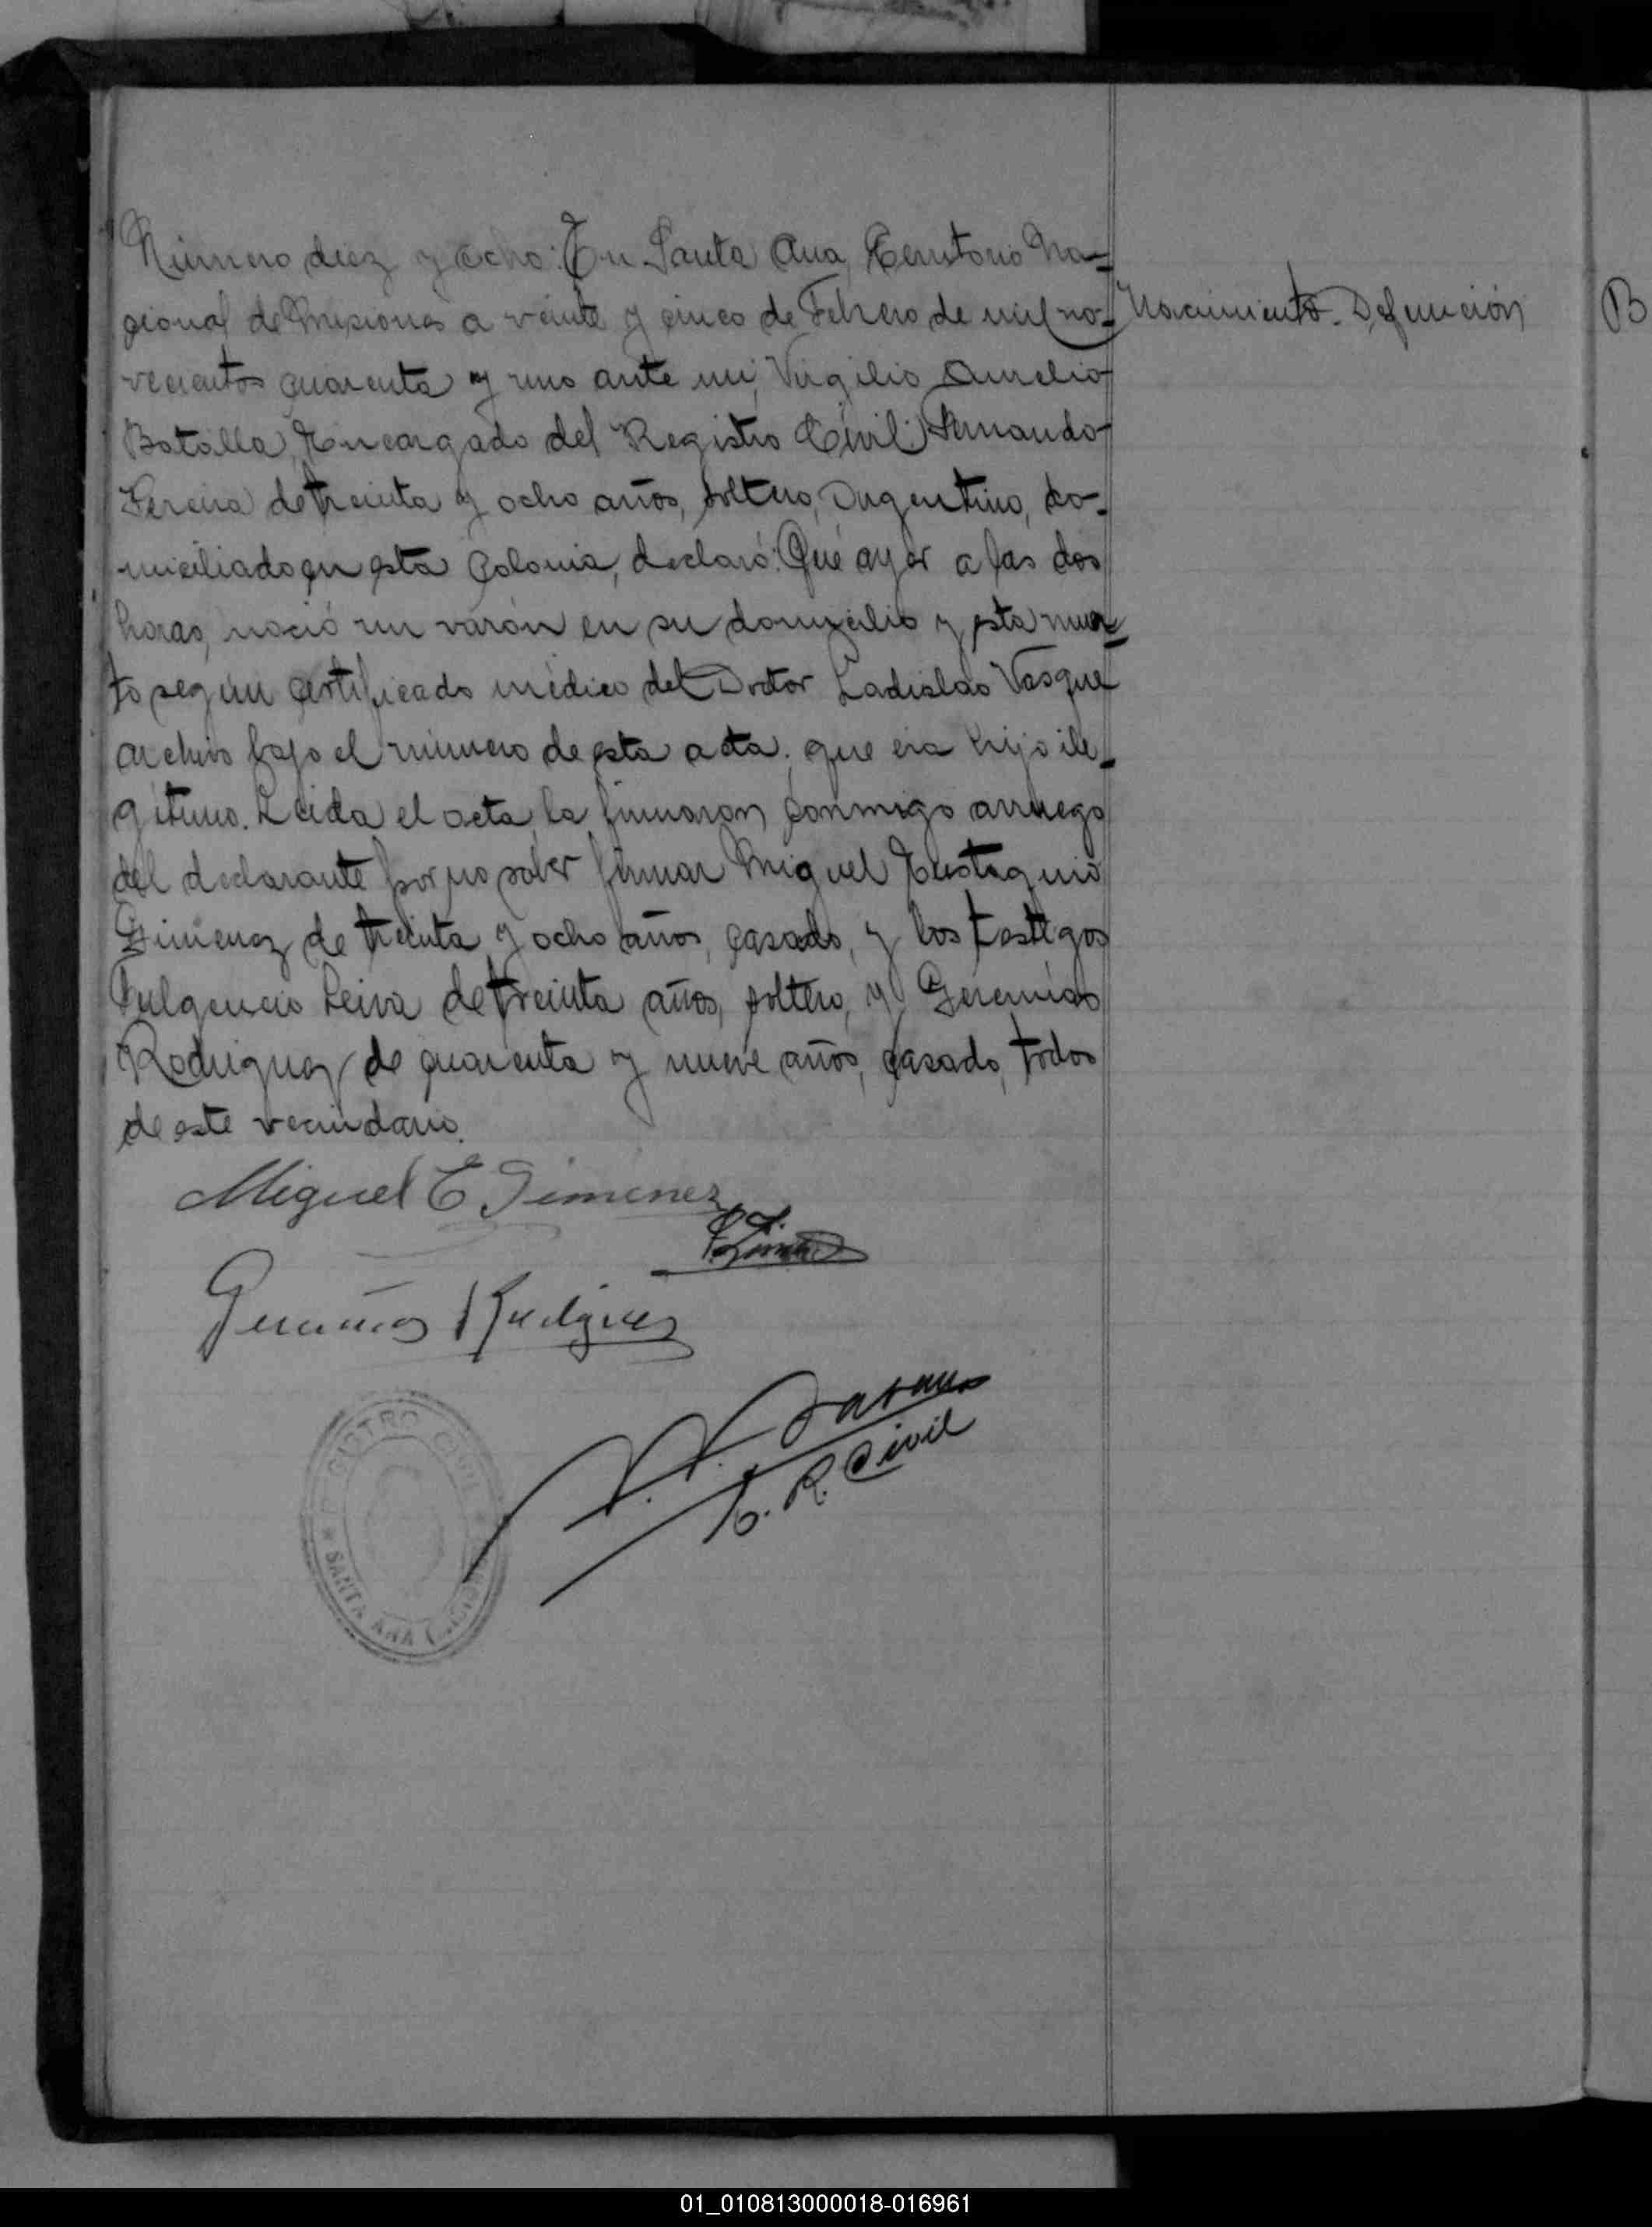 Número diez y ocho: En Santa Ana, Territorio Na-
cional de Misiones a veinte y cinco de Febrero de mil no-
vecientos cuarenta y uno ante mi, Virgilio Aurelio
Batalla, Encargado del Registro Civil: Fernando
Pereira de treinta y ocho años, soltero, Argentino, do-
miciliado en esta Colonia, declaró: Que ayer a las dos
horas, nació un varón en su domicilio y esta muer-
to según certificado médico del Doctor Ladislao Vasque
archivo bajo el número de esta acta; que era hijo ile-
gitimo. Leida el acta, la firmaron conmigo arruego
del declarante por no saber firmar Miguel Eustaquio
Gimenez de treinta y ocho años, casado, y los testigos
Fulgencio Leiva de treinta años, soltero, y Geremías
Rodriguez de cuarenta y nueve años, casado, todos
de este vecindario.
Nacimiento. Defunción
B
Miguel E Gimenez
Geremías Rodriguez
E. R. Civil
REGISTRO CIVIL
SANTA ANA
01_010813000018-016961